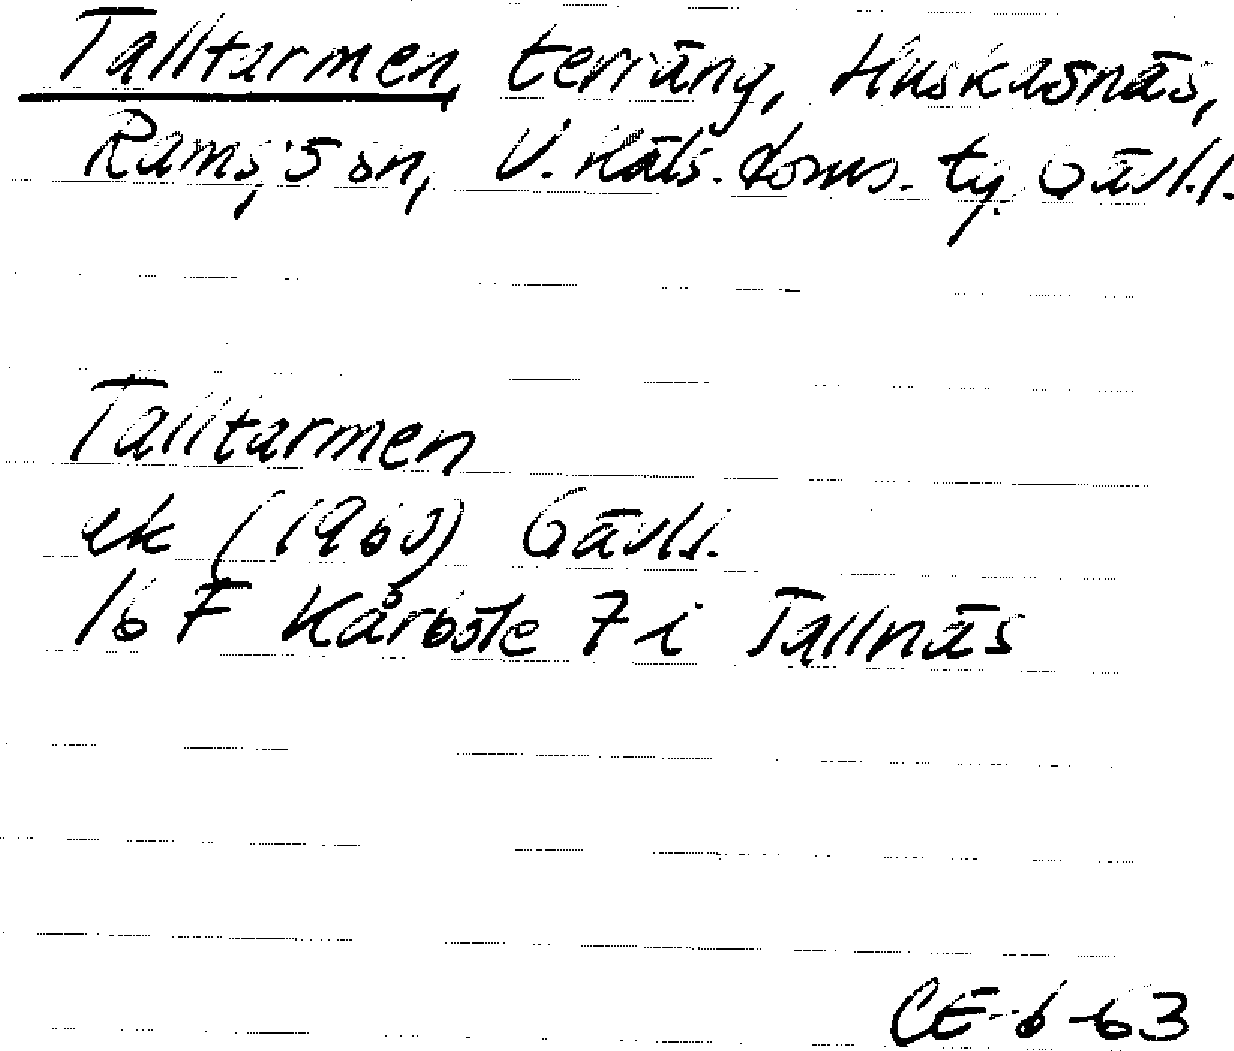 Talltarmen, terräng, Huskasnäs,
Ramsjö sn, V. Häls. doms. tg. Gävl.l.
Talltarmen
ek (1960) Gävl.l.
16 F Kårböle 7 i Tallnäs
CE-6-63